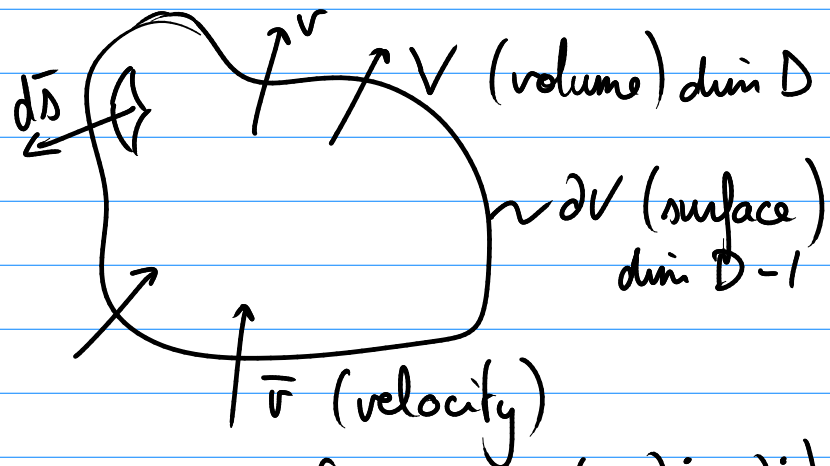 v
V (volume) dim D
ds̄
∂V (surface)
dim D-1
v̄ (velocity)